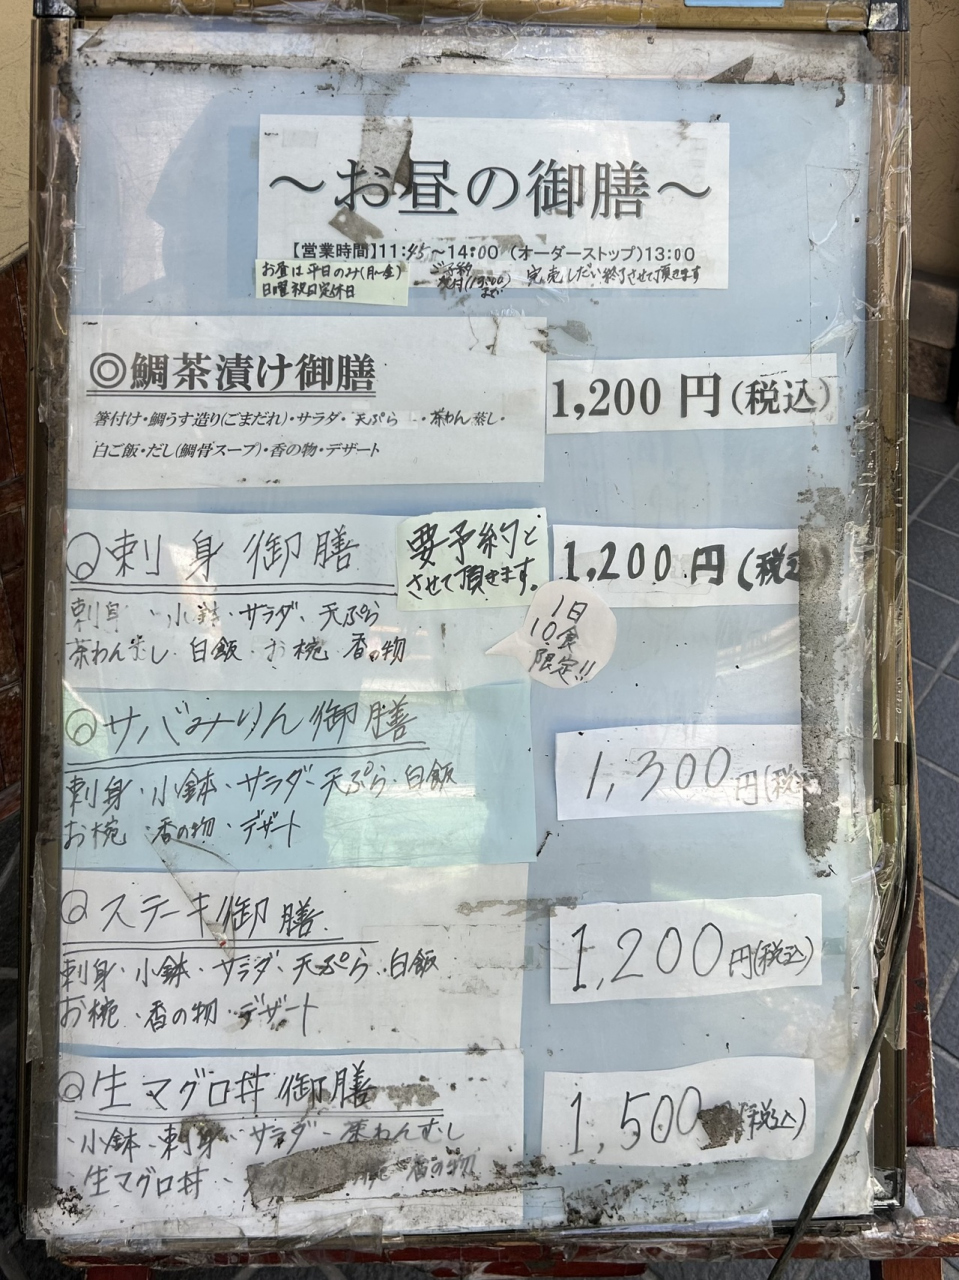 ～お昼の御膳～
【営業時間】11:45～14:00 (オーダーストップ)13:00
お昼は平日のみ(月～金)
日曜祝日定休日
ご予約
受付(13:00)
まで
完売しだい終了させて頂きます
◎鯛茶漬け御膳
1,200 円(税込)
箸付け・鯛うす造り(ごまだれ)・サラダ・天ぷら・茶わん蒸し・
白ご飯・だし(鯛骨スープ)・香の物・デザート
◎刺身御膳
要予約と
させて頂きます。
1,200 円(税込
刺身・小鉢・サラダ・天ぷら
茶わん蒸し・白飯・お椀・香の物
1日
10食
限定!!
◎サバみりん御膳
1,300円(税
刺身・小鉢・サラダ・天ぷら・白飯
お椀・香の物・デザート
◎ステーキ御膳
1,200円(税込)
刺身・小鉢・サラダ・天ぷら・白飯
お椀・香の物・デザート
◎生マグロ丼御膳
1,500 (税込)
・小鉢・刺身・サラダ・茶わんむし
・生マグロ丼・香の物